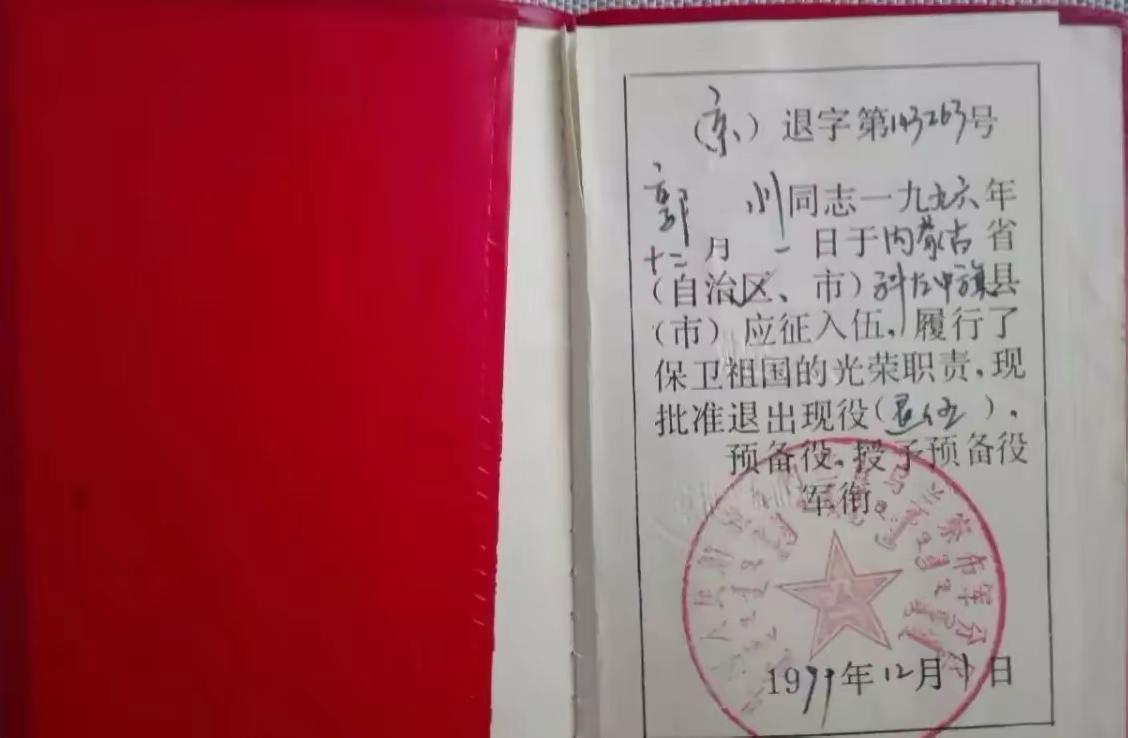 （京）退字第143263号
郭 川同志一九九六年
十二月 一日于内蒙古省
（自治区、市）科左中旗县
（市）应征入伍，履行了
保卫祖国的光荣职责，现
批准退出现役（退伍），
预备役，授予预备役
军衔。
乌兰察布军分
1999年12月1日